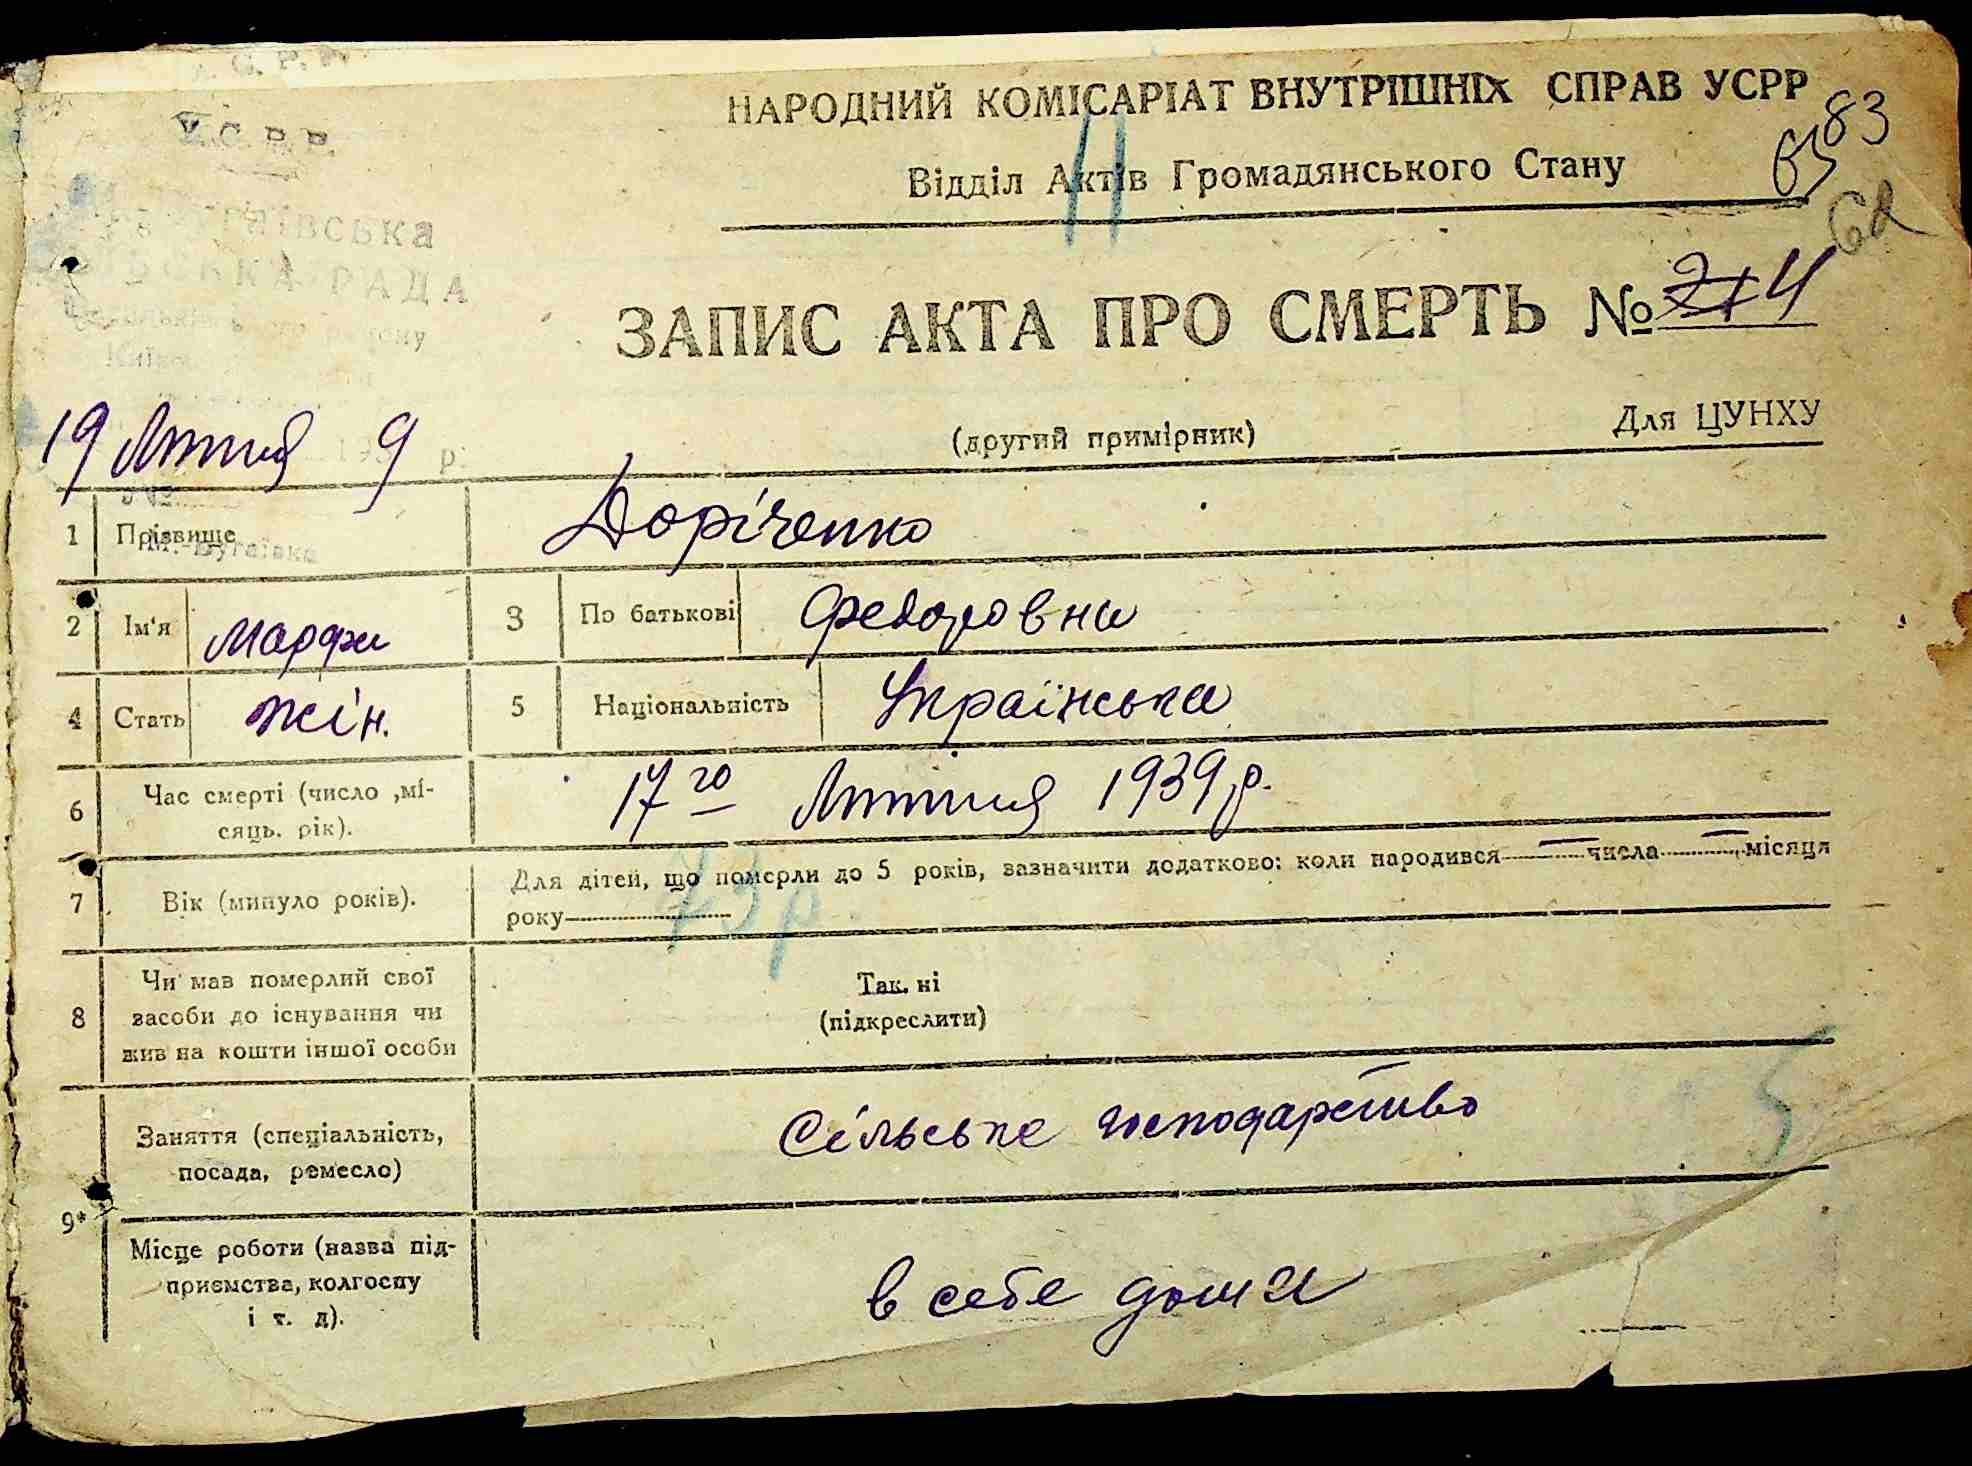 У.С.Р.Р.
НАРОДНИЙ КОМІСАРІАТ ВНУТРІШНІХ СПРАВ УСРР
83
Відділ Актів Громадянського Стану
65
62
РАДА
ЗАПИС АКТА ПРО СМЕРТЬ № 4
19 Лютия 1939 р.
(другий примірник) Для ЦУНХУ
1 Прізвище Доріченко
М.-Бугаївка
2 Ім'я Марфа 3 По батькові Федоровна
4 Стать жін. 5 Національність Українська
6 Час смерті (число ,мі-
сяць. рік). 17го Лютия 1939 р.
7 Вік (минуло років). Для дітей, що померли до 5 років, зазначити додатково: коли народився — числа — місяця
року
73 р.
8 Чи мав померлий свої
засоби до існування чи
жив на кошти іншої особи
Так. ні
(підкреслити)
9* Заняття (спеціальність,
посада, ремесло) Сільське господарство
5
Місце роботи (назва під-
приємства, колгоспу
і т. д).
в себе дома